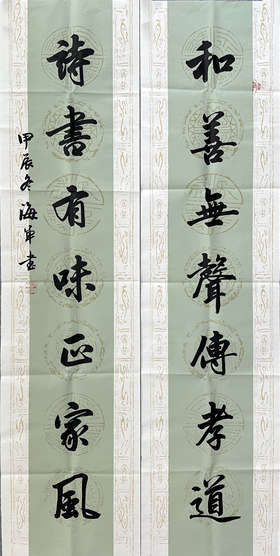 和善無聲傳孝道
詩書有味正家風
甲辰冬海軍書